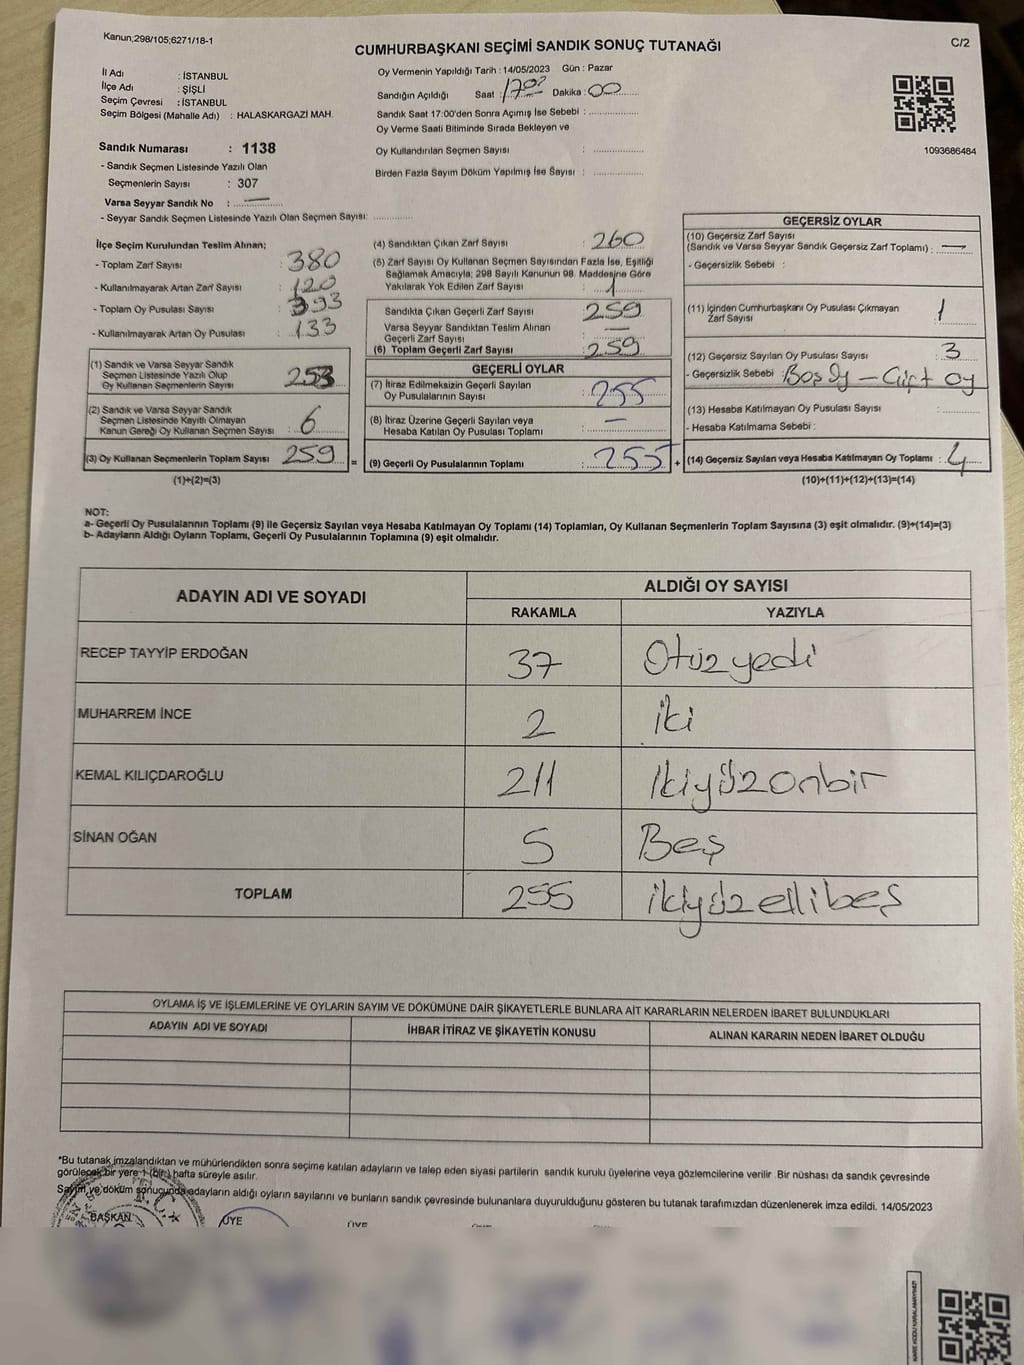 Kanun;298/105;6271/18-1
C/2
CUMHURBAŞKANI SEÇİMİ SANDIK SONUÇ TUTANAĞI
İl Adı : İSTANBUL
İlçe Adı : ŞİŞLİ
Seçim Çevresi : İSTANBUL
Seçim Bölgesi (Mahalle Adı) : HALASKARGAZİ MAH.
Sandık Numarası : 1138
- Sandık Seçmen Listesinde Yazılı Olan
Seçmenlerin Sayısı : 307
Varsa Seyyar Sandık No : —
- Seyyar Sandık Seçmen Listesinde Yazılı Olan Seçmen Sayısı: ............
Oy Vermenin Yapıldığı Tarih : 14/05/2023 Gün : Pazar
Sandığın Açıldığı Saat : 17 Dakika : 00
Sandık Saat 17:00'den Sonra Açımış İse Sebebi : ............
Oy Verme Saati Bitiminde Sırada Bekleyen ve
Oy Kullandırılan Seçmen Sayısı : ............
Birden Fazla Sayım Döküm Yapılmış İse Sayısı : ............
1093686484
İlçe Seçim Kurulundan Teslim Alınan;
- Toplam Zarf Sayısı : 380
- Kullanılmayarak Artan Zarf Sayısı : 120
- Toplam Oy Pusulası Sayısı : 393
- Kullanılmayarak Artan Oy Pusulası : 133
(1) Sandık ve Varsa Seyyar Sandık
Seçmen Listesinde Yazılı Olup
Oy Kullanan Seçmenlerin Sayısı : 253
(2) Sandık ve Varsa Seyyar Sandık
Seçmen Listesinde Kayıtlı Olmayan
Kanun Gereği Oy Kullanan Seçmen Sayısı : 6
(3) Oy Kullanan Seçmenlerin Toplam Sayısı : 259 =
(1)+(2)=(3)
(4) Sandıktan Çıkan Zarf Sayısı : 260
(5) Zarf Sayısı Oy Kullanan Seçmen Sayısından Fazla İse, Eşitliği
Sağlamak Amacıyla; 298 Sayılı Kanunun 98. Maddesine Göre
Yakılarak Yok Edilen Zarf Sayısı : 1
Sandıkta Çıkan Geçerli Zarf Sayısı : 259
Varsa Seyyar Sandıktan Teslim Alınan
Geçerli Zarf Sayısı : —
(6) Toplam Geçerli Zarf Sayısı : 259
GEÇERLİ OYLAR
(7) İtiraz Edilmeksizin Geçerli Sayılan
Oy Pusulalarının Sayısı : 255
(8) İtiraz Üzerine Geçerli Sayılan veya
Hesaba Katılan Oy Pusulası Toplamı : —
(9) Geçerli Oy Pusulalarının Toplamı : 255 +
GEÇERSİZ OYLAR
(10) Geçersiz Zarf Sayısı
(Sandık ve Varsa Seyyar Sandık Geçersiz Zarf Toplamı) : —
- Geçersizlik Sebebi :
(11) İçinden Cumhurbaşkanı Oy Pusulası Çıkmayan
Zarf Sayısı : 1
(12) Geçersiz Sayılan Oy Pusulası Sayısı : 3
- Geçersizlik Sebebi : Boş Oy – Çift oy
(13) Hesaba Katılmayan Oy Pusulası Sayısı : ............
- Hesaba Katılmama Sebebi :
(14) Geçersiz Sayılan veya Hesaba Katılmayan Oy Toplamı : 4
(10)+(11)+(12)+(13)=(14)
NOT:
a- Geçerli Oy Pusulalarının Toplamı (9) ile Geçersiz Sayılan veya Hesaba Katılmayan Oy Toplamı (14) Toplamları, Oy Kullanan Seçmenlerin Toplam Sayısına (3) eşit olmalıdır. (9)+(14)=(3)
b- Adayların Aldığı Oyların Toplamı, Geçerli Oy Pusulalarının Toplamına (9) eşit olmalıdır.
ADAYIN ADI VE SOYADI
ALDIĞI OY SAYISI
RAKAMLA YAZIYLA
RECEP TAYYİP ERDOĞAN 37 Otuz yedi
MUHARREM İNCE 2 iki
KEMAL KILIÇDAROĞLU 211 İkiyüzonbir
SİNAN OĞAN 5 Beş
TOPLAM 255 ikiyüzellibeş
OYLAMA İŞ VE İŞLEMLERİNE VE OYLARIN SAYIM VE DÖKÜMÜNE DAİR ŞİKAYETLERLE BUNLARA AİT KARARLARIN NELERDEN İBARET BULUNDUKLARI
ADAYIN ADI VE SOYADI İHBAR İTİRAZ VE ŞİKAYETİN KONUSU ALINAN KARARIN NEDEN İBARET OLDUĞU
*Bu tutanak imzalandıktan ve mühürlendikten sonra seçime katılan adayların ve talep eden siyasi partilerin sandık kurulu üyelerine veya gözlemcilerine verilir. Bir nüshası da sandık çevresinde
görülecek bir yere 1 (bir) hafta süreyle asılır.
Sayım ve döküm sonucunda adayların aldığı oyların sayılarını ve bunların sandık çevresinde bulunanlara duyurulduğunu gösteren bu tutanak tarafımızdan düzenlenerek imza edildi. 14/05/2023
BAŞKAN ÜYE ÜYE